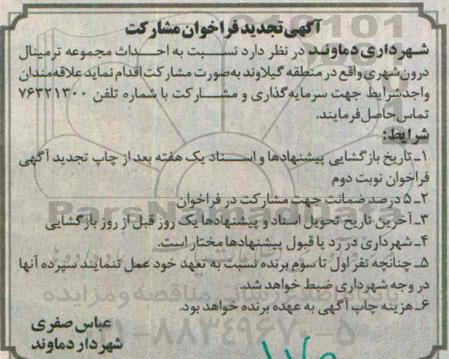 آگهی تجدید فراخوان مشارکت
شهرداری دماوند در نظر دارد نسبت به احداث مجموعه ترمینال
درون‌شهری واقع در منطقه گیلاوند به‌صورت مشارکت اقدام نماید علاقه‌مندان
واجد شرایط جهت سرمایه‌گذاری و مشارکت با شماره تلفن ۷۶۳۲۱۳۰۰
تماس حاصل فرمایند.
شرایط:
۱ـ تاریخ بازگشایی پیشنهادها و اسناد یک هفته بعد از چاپ تجدید آگهی
فراخوان نوبت دوم
۲ـ ۵ درصد ضمانت جهت مشارکت در فراخوان
۳ـ آخرین تاریخ تحویل اسناد و پیشنهادها یک روز قبل از روز بازگشایی
۴ـ شهرداری در رد یا قبول پیشنهادها مختار است.
۵ـ چنانچه نفر اول تا سوم برنده نسبت به تعهد خود عمل ننمایند سپرده آنها
در وجه شهرداری ضبط خواهد شد.
۶ـ هزینه چاپ آگهی به عهده برنده خواهد بود.
عباس صفری
شهردار دماوند
ParsNamadData
۰۲۱-۸۸۳۴۹۶۷۰-۵